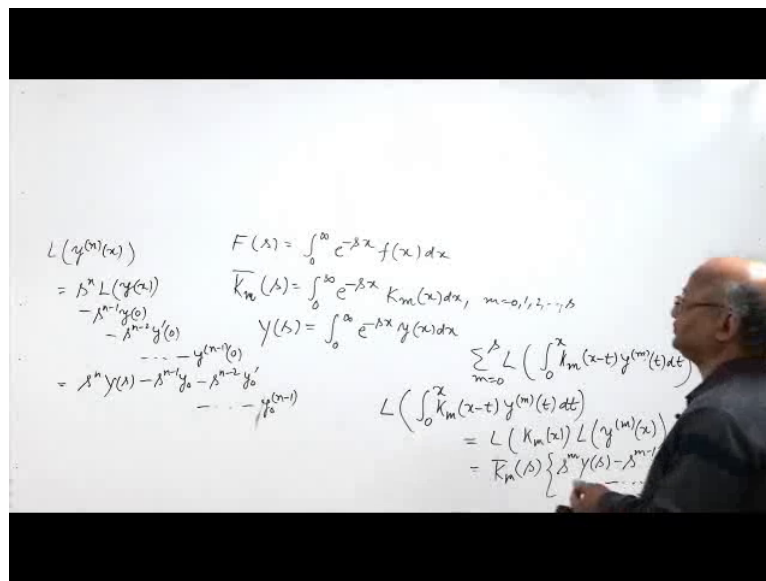 L(y^{(n)}(x))
= s^n L(y(x))
- s^{n-1}y(0)
- s^{n-2}y'(0)
... - y^{(n-1)}(0)
= s^n Y(s) - s^{n-1}y_0 - s^{n-2}y_0'
- ... - y_0^{(n-1)}
F(s) = ∫_0^∞ e^{-sx} f(x) dx
\overline{K}_m(s) = ∫_0^∞ e^{-sx} K_m(x)dx, m=0,1,2,...,s
Y(s) = ∫_0^∞ e^{-sx} y(x)dx
∑_{m=0}^s L(∫_0^x K_m(x-t) y^{(m)}(t)dt)
L(∫_0^x K_m(x-t) y^{(m)}(t) dt)
= L(K_m(x)) L(y^{(m)}(x))
= \overline{K}_m(s) { s^m Y(s) - s^{m-1}
- ...